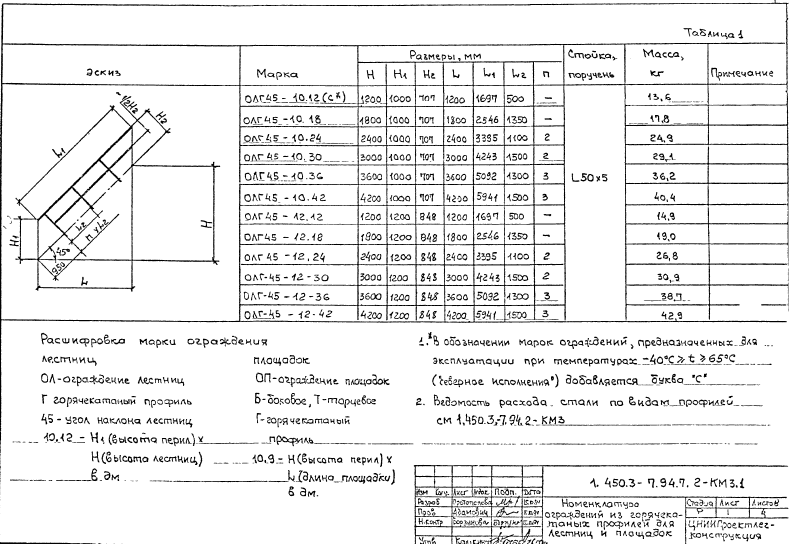 Таблица 1
эскиз Марка Размеры, мм Стойка, поручень Масса, кг Примечание
H H1 H2 L L1 L2 n
ОЛГ45 - 10.12 (с*) 1200 1000 707 1200 1697 500 — 13,6
ОЛГ45 - 10.18 1800 1000 707 1800 2546 1350 — 17,8
ОЛГ45 - 10.24 2400 1000 707 2400 3395 1100 2 24,9
ОЛГ45 - 10.30 3000 1000 707 3000 4243 1500 2 29,1
ОЛГ45 - 10.36 3600 1000 707 3600 5092 1300 3 L50x5 36,2
ОЛГ45 - 10.42 4200 1000 707 4200 5941 1500 3 40,4
ОЛГ45 - 12.12 1200 1200 848 1200 1697 500 — 14,9
ОЛГ45 - 12.18 1800 1200 848 1800 2546 1350 — 19,0
ОЛГ45 - 12.24 2400 1200 848 2400 3395 1100 2 26,8
ОЛГ-45-12-30 3000 1200 848 3000 4243 1500 2 30,9
ОЛГ-45-12-36 3600 1200 848 3600 5092 1300 3 38,7
ОЛГ-45-12-42 4200 1200 848 4200 5941 1500 3 42,9
1/2H2
H2
L1
H
H1
L2
n x L2
45°
L
Расшифровка марки ограждения
лестниц площадок
ОЛ-ограждение лестниц ОП-ограждение площадок
Г горячекатаный профиль Б-боковое, Т-торцевое
45-угол наклона лестниц Г-горячекатаный
10.12 - H1 (высота перил) x профиль
H (высота лестниц) 10.9 - H (высота перил) x
в дм L (длина площадки)
в дм.
1.* В обозначении марок ограждений, предназначенных для
эксплуатации при температурах -40°С ≥ t ≥ 65°С
("северное исполнения") добавляется буква "С"
2. Ведомость расхода стали по видам профилей
см 1.450.3-7.94.2-КМ3
1. 450.3- 7.94.7. 2-КМ3.1
Изм Лист Подп. Дата
Разраб
Пров Адамович
Н.контр
Утв
Номенклатура
ограждений из горячека-
таных профилей для
лестниц и площадок
Стадия Лист Листов
Р 1 4
ЦНИИПроектлег-
конструкция